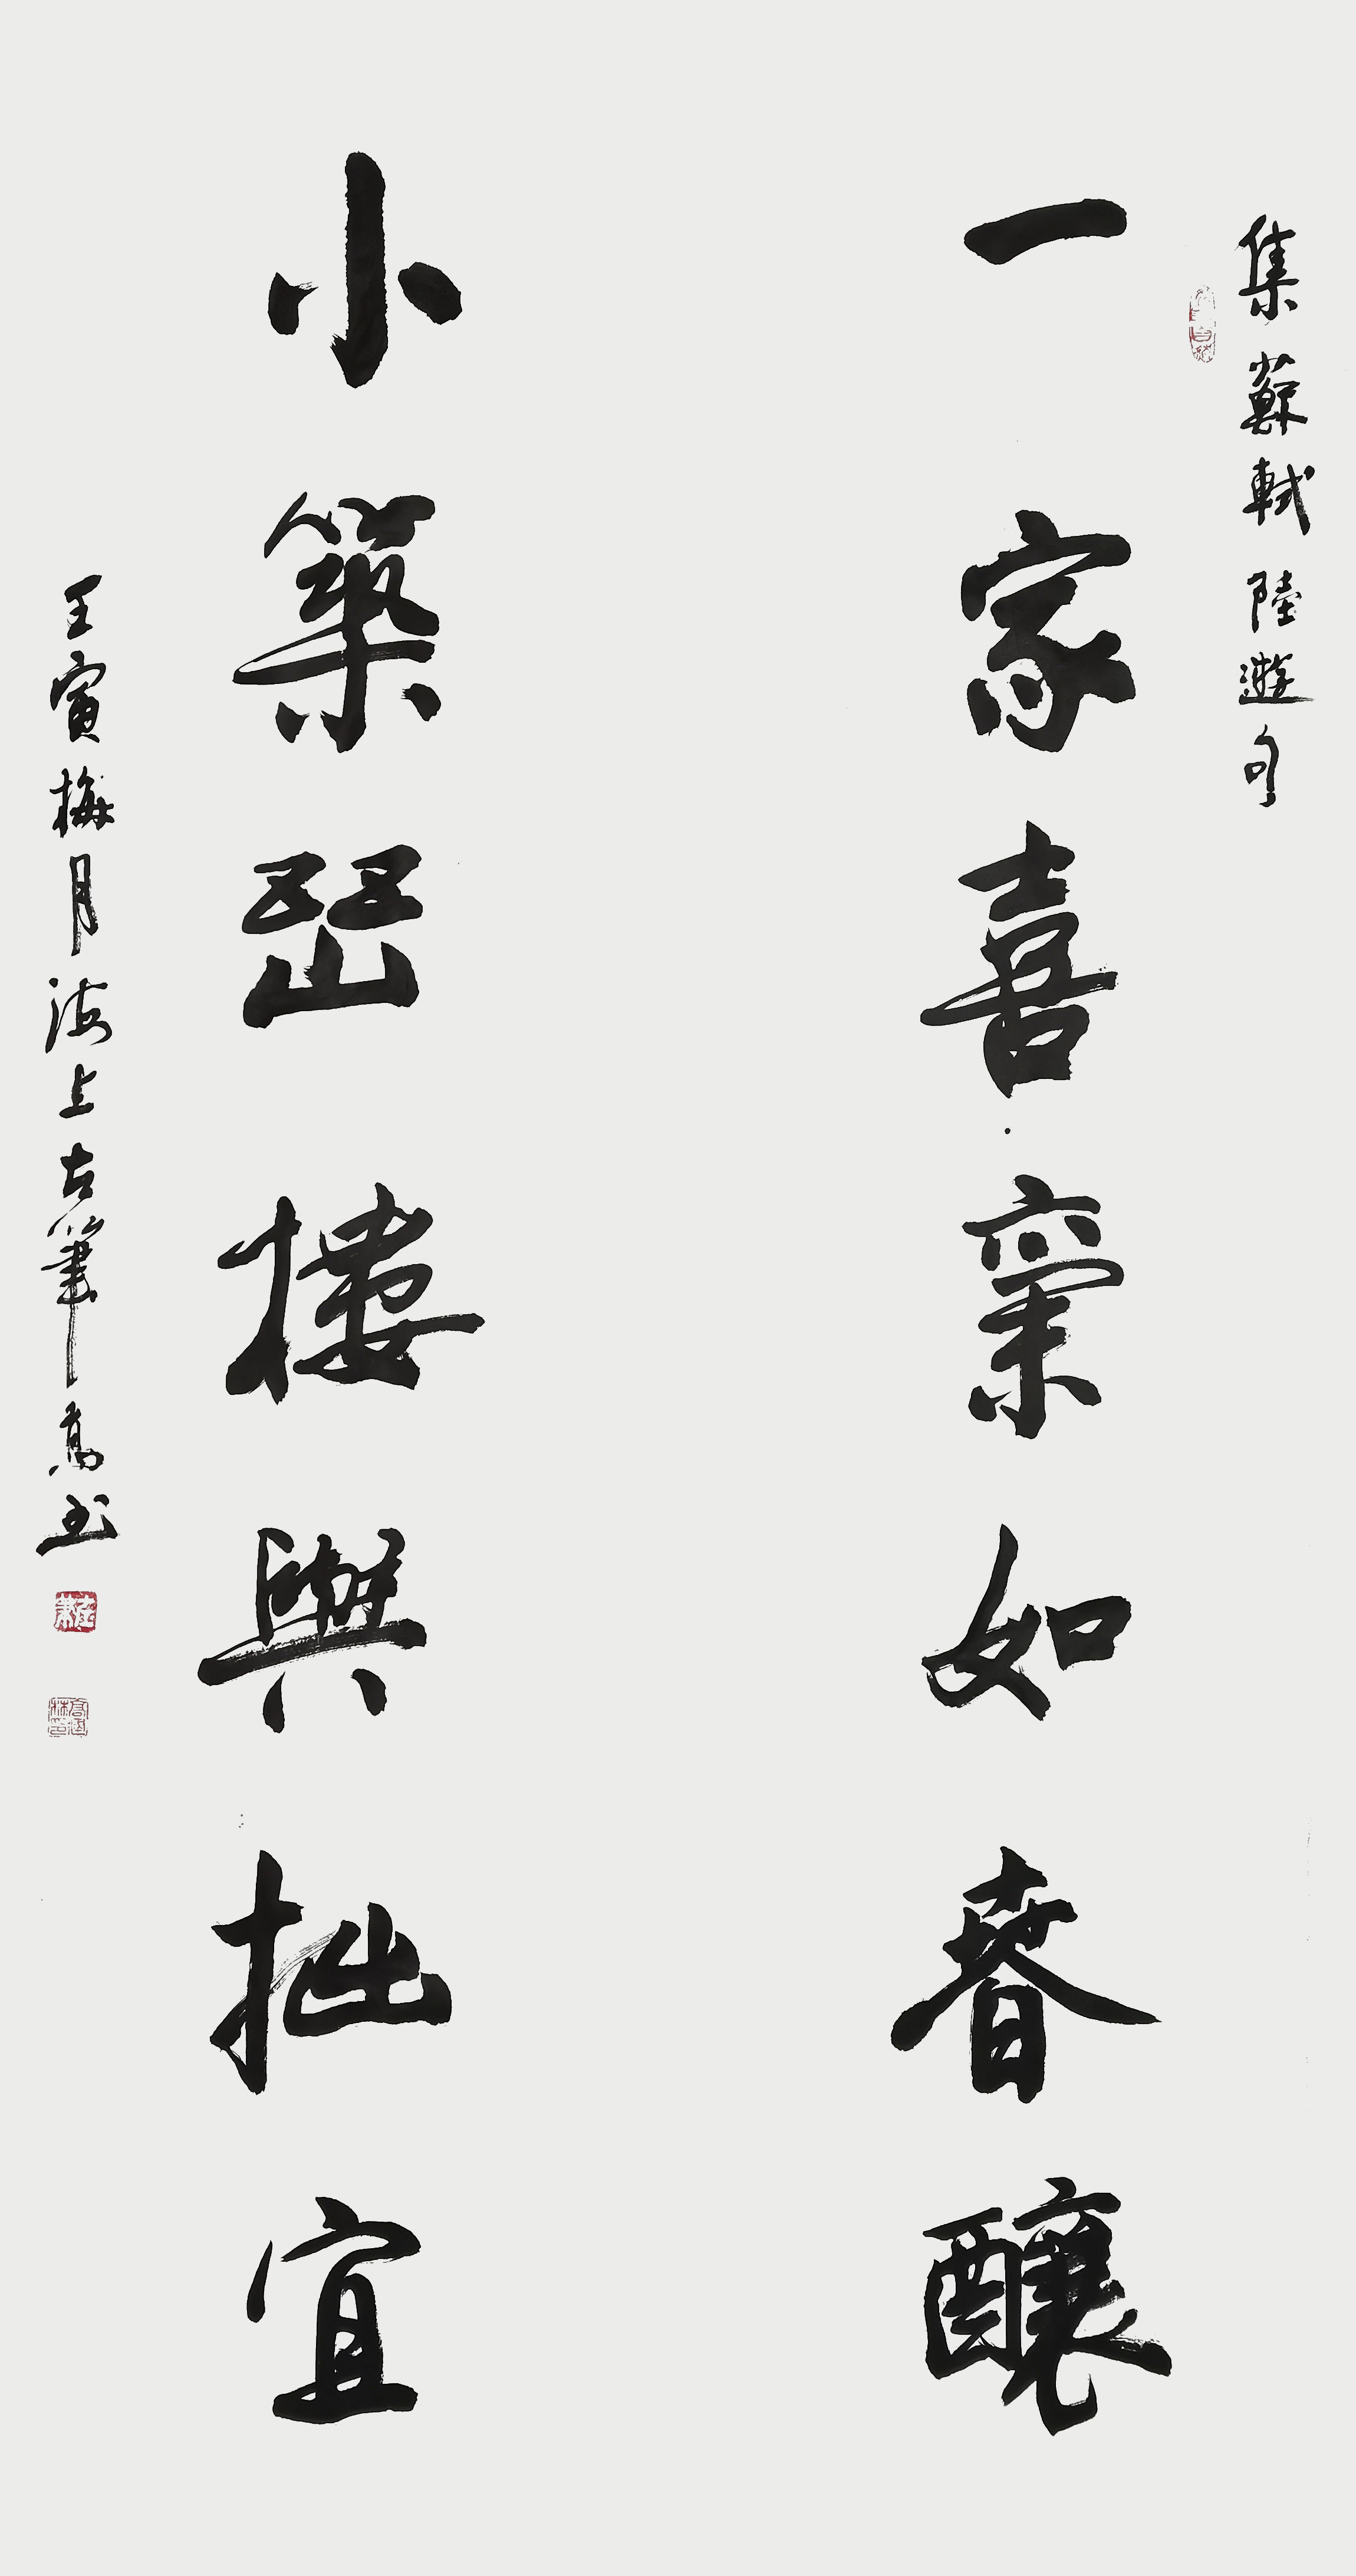 集蘇軾陸遊句
一家喜氣如春釀
小築幽棲與拙宜
壬寅梅月海上古筆高书